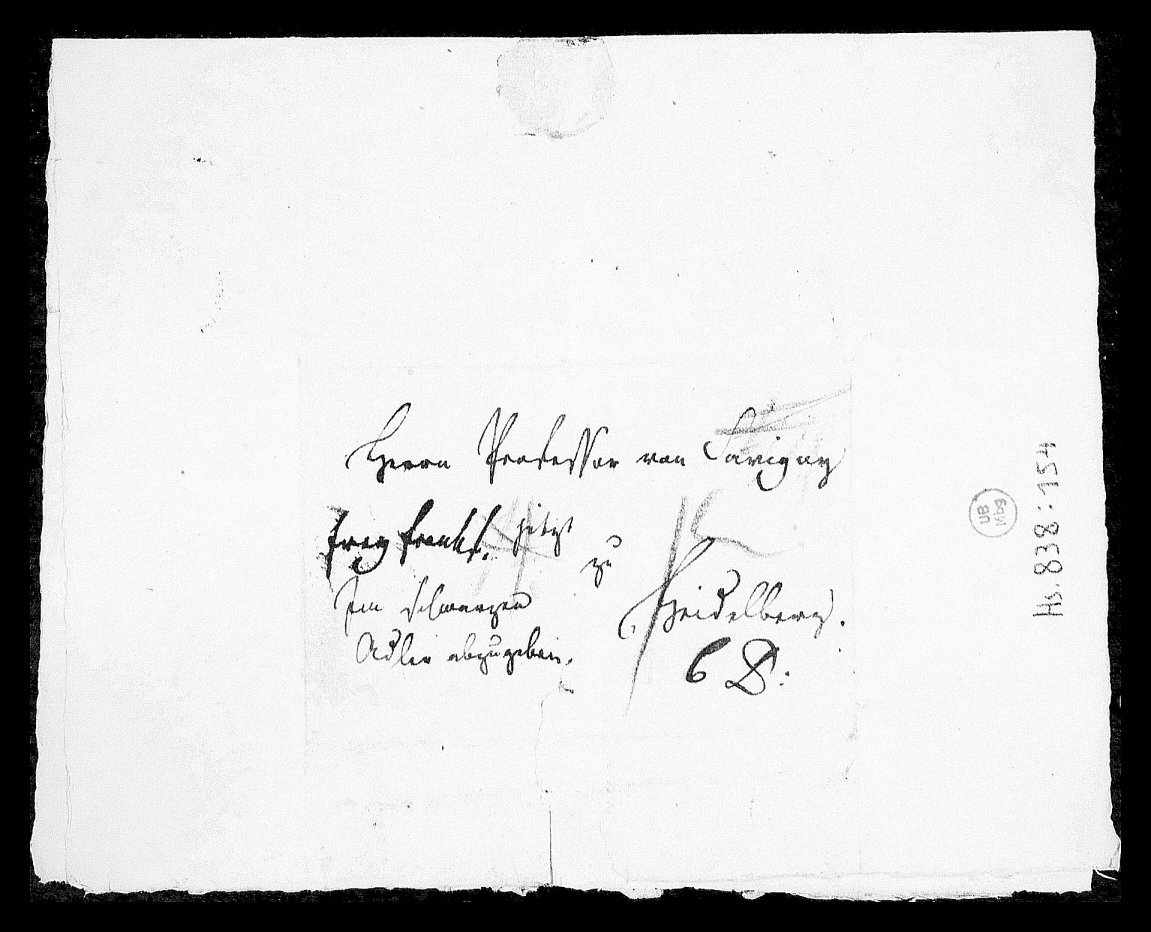 Herrn Professor von Savigny
frey Frankf. jetzt
zu
Heidelberg.
Im schwarzen
Adler abzugeben.
6
UB
Mbg
Hs. 838:154